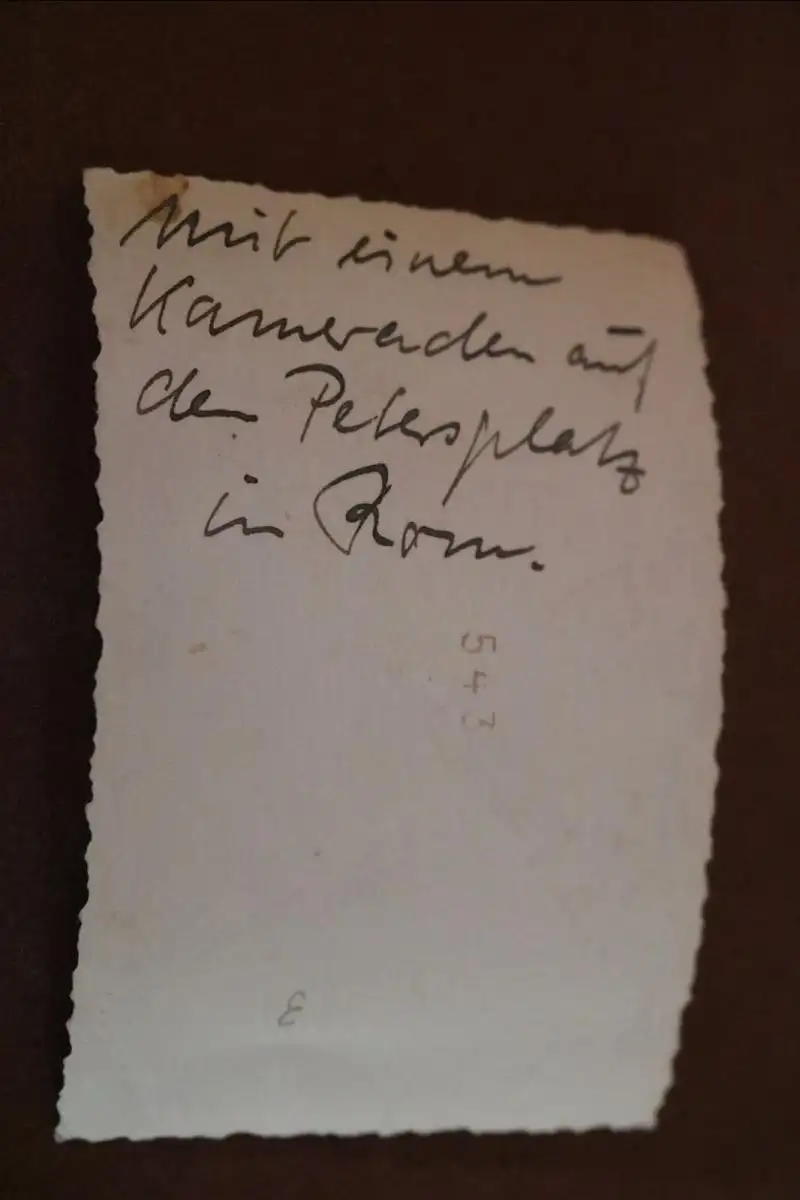 Mit einem
Kameraden auf
dem Petersplatz
in Rom.
543
3